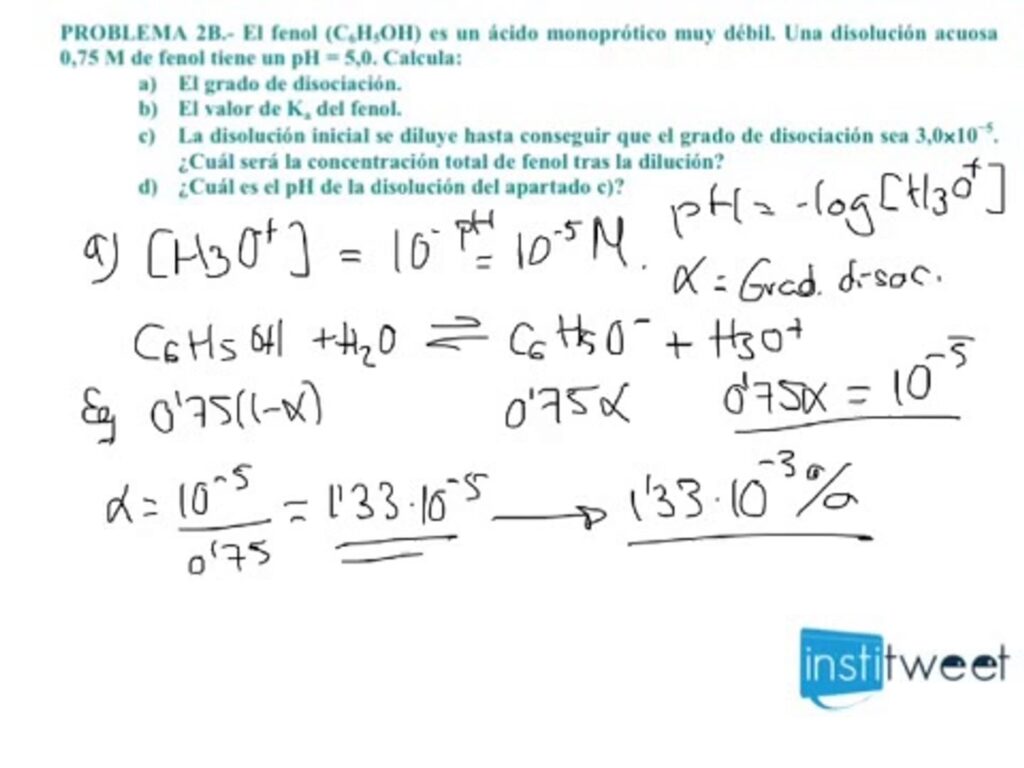 PROBLEMA 2B.- El fenol (C₆H₅OH) es un ácido monoprótico muy débil. Una disolución acuosa
0,75 M de fenol tiene un pH = 5,0. Calcula:
a) El grado de disociación.
b) El valor de Kₐ del fenol.
c) La disolución inicial se diluye hasta conseguir que el grado de disociación sea 3,0x10⁻⁵.
¿Cuál será la concentración total de fenol tras la dilución?
d) ¿Cuál es el pH de la disolución del apartado c)?
pH = -log[H3O⁺]
a) [H3O⁺] = 10⁻ᵖᴴ = 10⁻⁵ M.
α = Grad. disoc.
C6H5OH + H2O ⇌ C6H5O⁻ + H3O⁺
Eq 0'75(1-α) 0'75α 0'75α = 10⁻⁵
α = 10⁻⁵ / 0'75 = 1'33·10⁻⁵ → 1'33·10⁻³ %
institweet